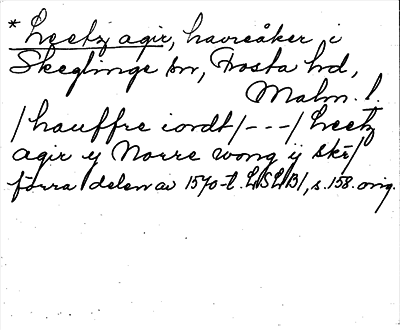 * Hveetz agir, havreåker, i
Skeglinge sn, Frosta hd,
Malm. l.
/ hauffre iordt / - - - / hveetz
agir y Norre wong ij skr /
förra delen av 1570-t. LSLB1, s. 158. orig.